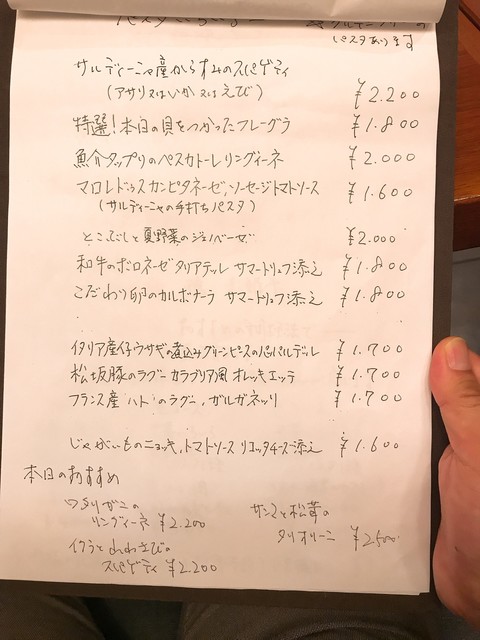 パスタ
パスタあります
サルディーニャ産からすみのスパゲティ
(アサリ又はいか又はえび) ¥2.200
特選!本日の貝をつかったフレーグラ ¥1.800
魚介タップリのペスカトーレリングイーネ ¥2.000
マロレドゥスカンピダネーゼ,ソーセージトマトソース ¥1.600
(サルディーニャの手打ちパスタ)
とこぶしと夏野菜のジェノベーゼ ¥2.000
和牛のボロネーゼタリアテッレ サマートリュフ添え ¥1.800
こだわり卵のカルボナーラ サマートリュフ添え ¥1.800
イタリア産仔ウサギの煮込みグリーンピースのパッパルデッレ ¥1.700
松坂豚のラグーカラブリア風 オレッキエッテ ¥1.700
フランス産ハトのラグー,ガルガネッリ ¥1.700
じゃがいものニョッキ,トマトソース リコッタチーズ添え ¥1.600
本日のおすすめ
ワタリガニの
リングイーネ ¥2.200
イクラとわさびの
スパゲティ ¥2.200
サンマと松茸の
タリオリーニ ¥2500